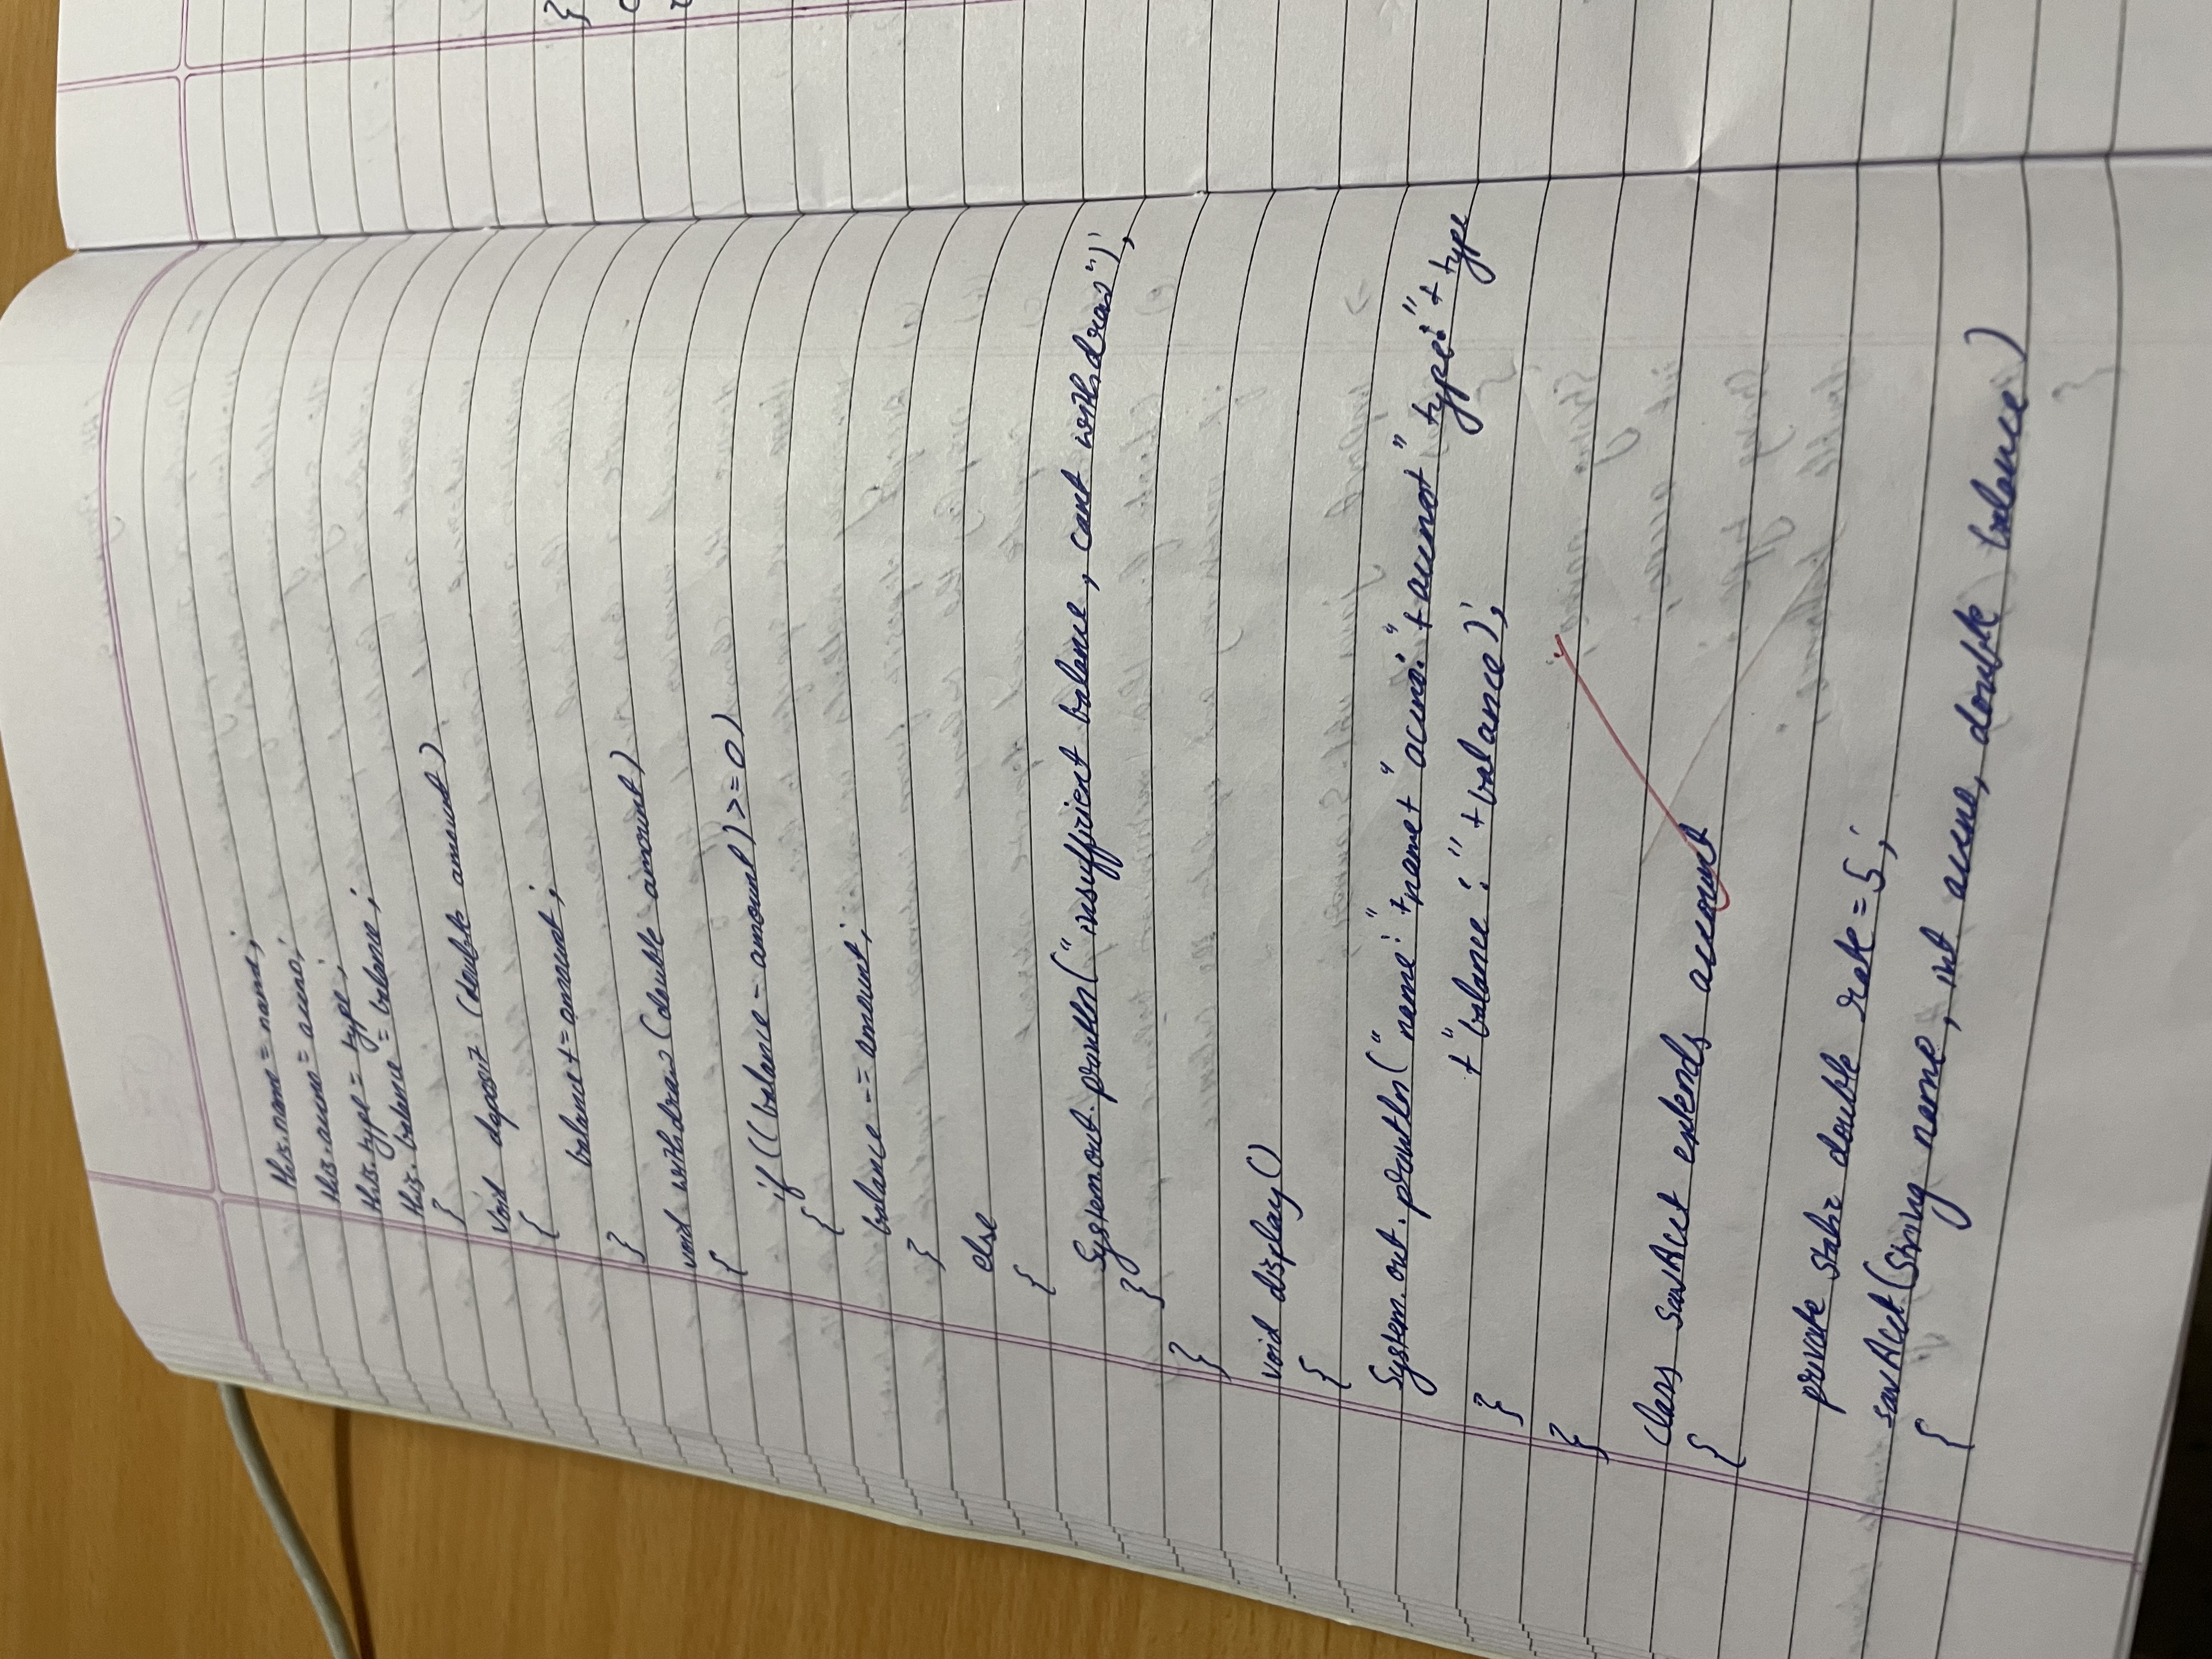 this.name = name;
this.accno = accno;
this.type = type;
this.balance = balance;
}
void deposit (double amount)
{
balance += amount;
}
void withdraw (double amount)
{
if ((balance - amount) >= 0)
{
balance -= amount;
}
else
{
System.out.println("insufficient balance, cant withdraw");
}
}
void display()
{
System.out.println("name:" + name + "accno:" + accno + "type:" + type
+ "balance:" + balance);
}
}
class savAcct extends account
{
private static double rate = 5;
savAcct (String name, int accno, double balance)
{